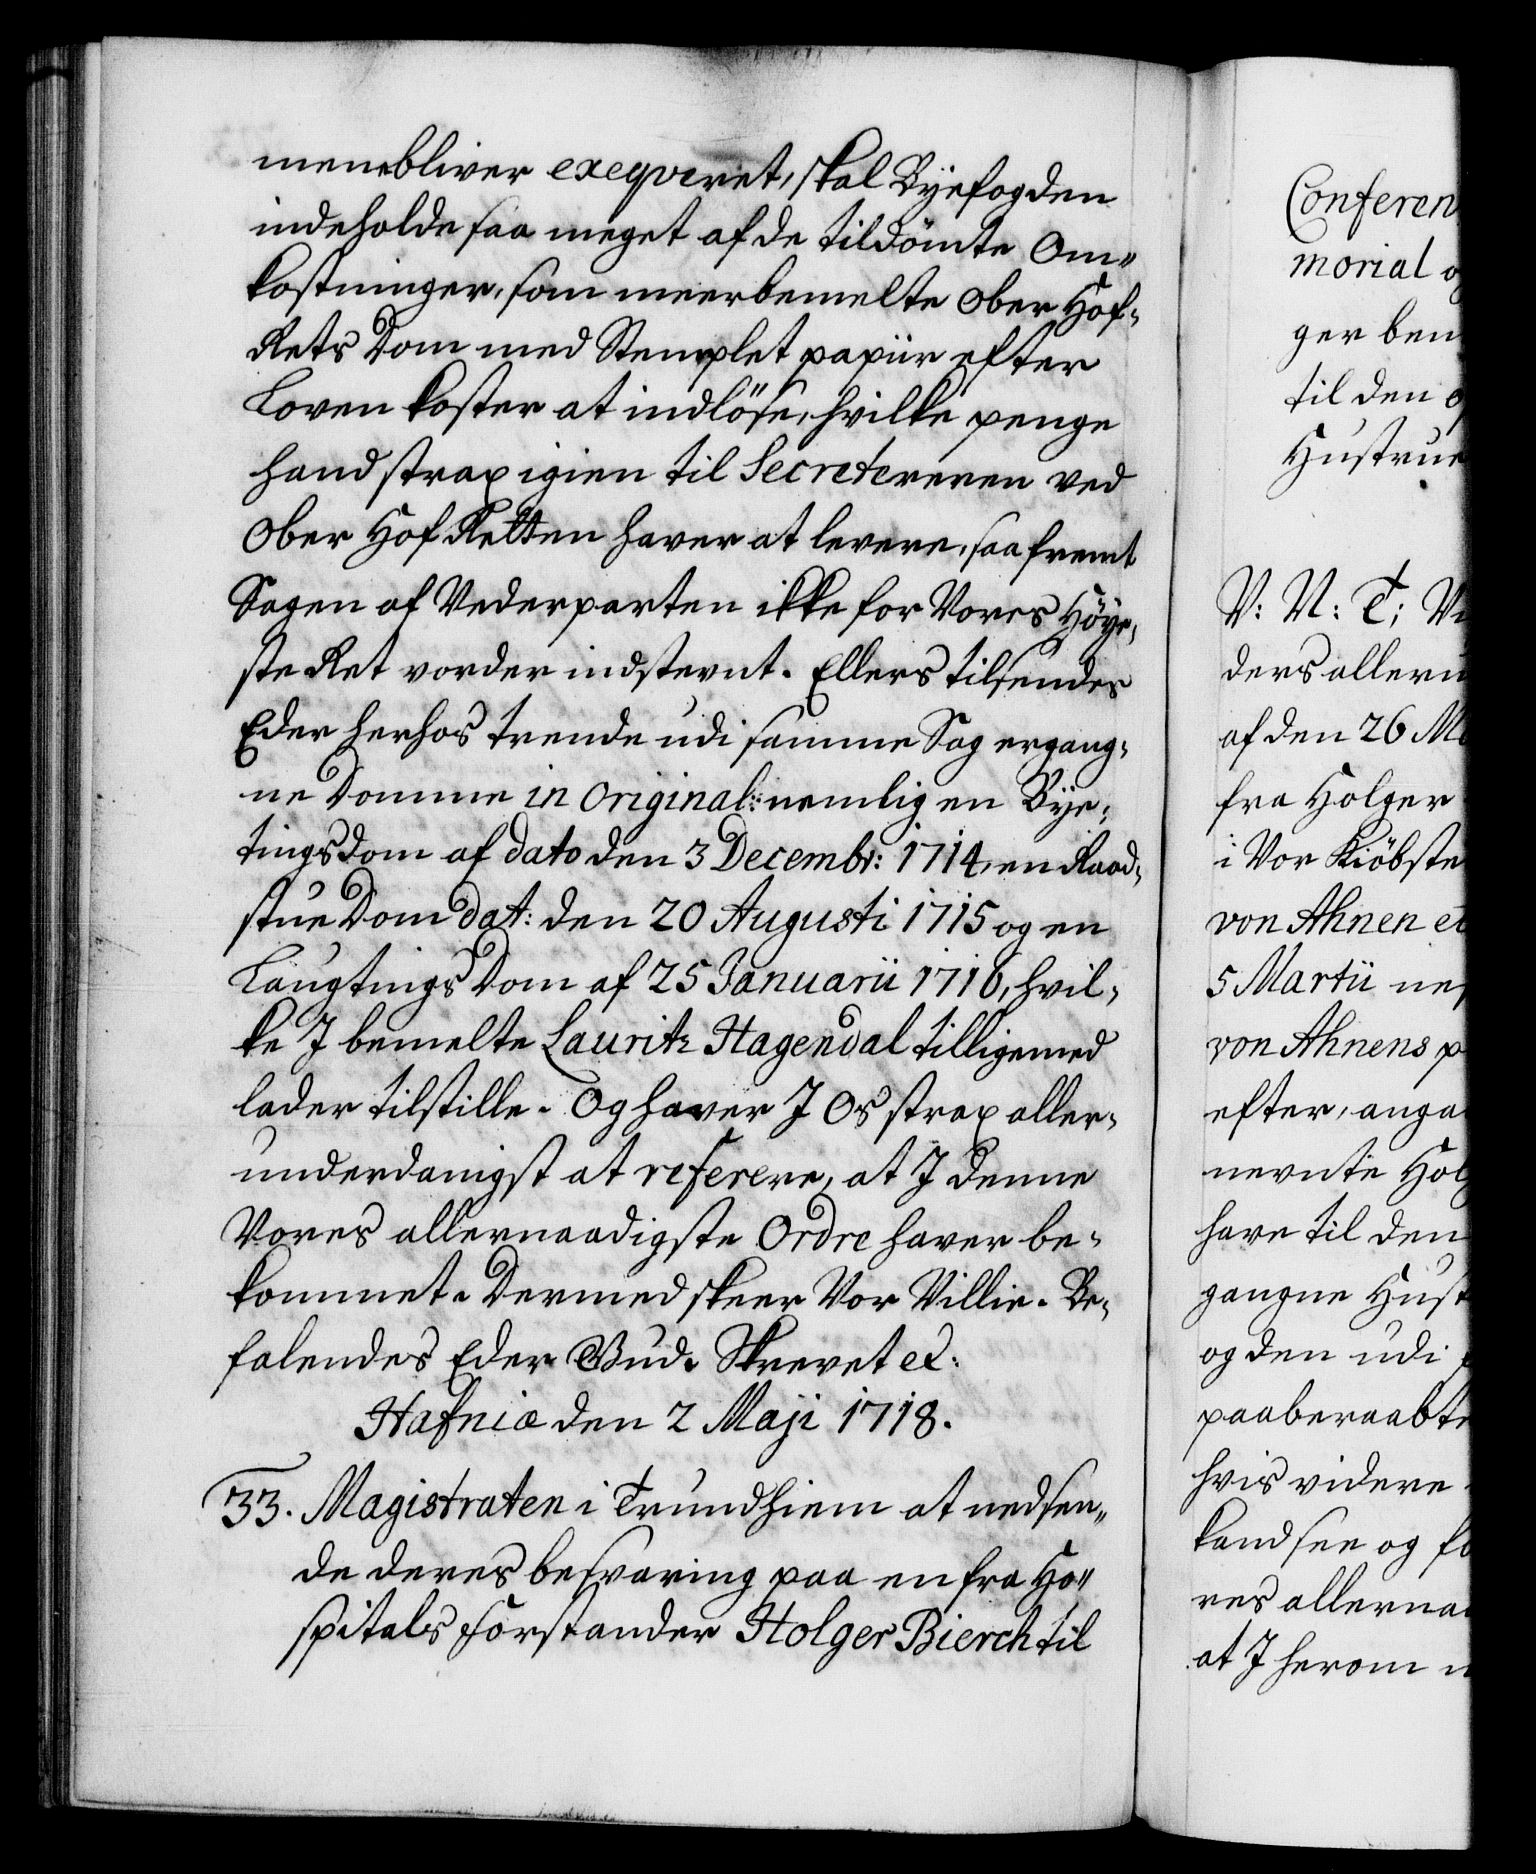 menebliver exeqveret, skal Byefogden
indeholde saa meget af de tildömte Om-
kostninger, som meerbemelte Ober Hof-
Rets Dom med Stemplet papiir efter
Loven koster at indlöse, hvilke penge
hand strax igien til Secretereren ved
Ober Hof Retten haver at levere, saafremt
Sagen af Vederparten ikke for Vores Höye-
ste Ret vorder indstevnt. Ellers tilsendes
Eder herhos trende udi samme Sag ergang-
ne Domme in Original: nemlig en Bye-
tingsdom af dato den 3 Decembr: 1714, en Raad-
stue Dom dat: den 20 Augusti 1715 og en
Laugtings Dom af 25 Januarii 1716, hvil-
ke I bemelte Lauritz Hagendal tilligemed
lader tilstille. Og haver I Os strax aller-
underdanigst at referere, at I denne
Vores allernaadigste Ordre haver be-
kommet. Dermed skeer Vor Villie. Be-
falendes Eder Gud. Skrevet et:
Hafniæ den 2 Maji 1718.
33. Magistraten i Trundhiem at nedsen-
de deres besvaring paa en fra Ho-
spitals Forstander Holger Bierch til
Conferen
morial o
ger ben
til den
Hustrue
V: N: T: V
ders alleru
af den 26 M
fra Holger
i Vor Kiöbste
von Ahnen et
5 Martii nes
von Ahnens p
efter, anga
nevnte Hol
have til den
gangne Hust
og den udi
paaberaabte
hvis videre
kand see og fo
res allerna
at I herom